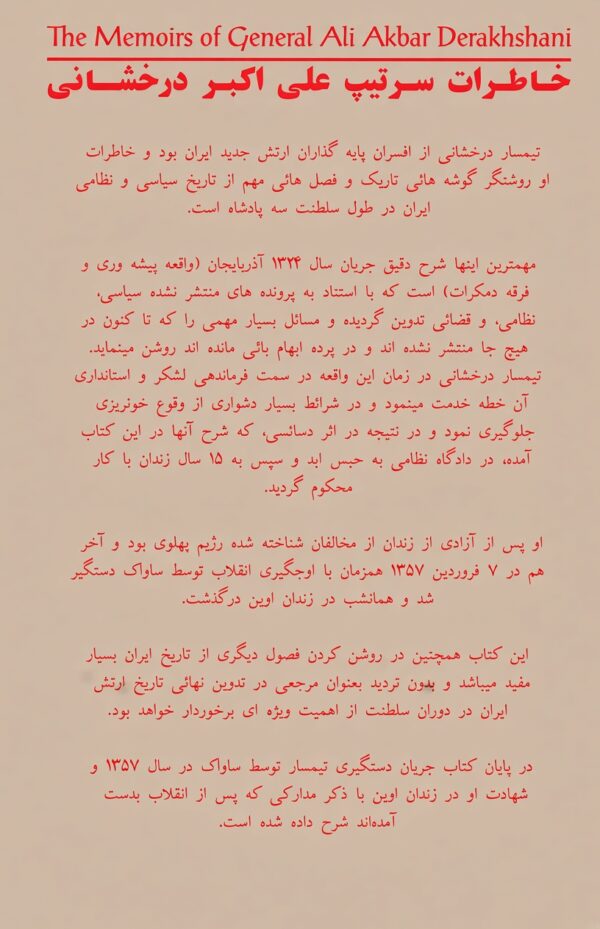 The Memoirs of General Ali Akbar Derakhshani
خاطرات سرتیپ علی اکبر درخشانی
تیمسار درخشانی از افسران پایه گذاران ارتش جدید ایران بود و خاطرات
او روشنگر گوشه هائی تاریک و فصل هائی مهم از تاریخ سیاسی و نظامی
ایران در طول سلطنت سه پادشاه است.
مهمترین اینها شرح دقیق جریان سال ۱۳۲۴ آذربایجان (واقعه پیشه وری و
فرقه دمکرات) است که با استناد به پرونده های منتشر نشده سیاسی،
نظامی، و قضائی تدوین گردیده و مسائل بسیار مهمی را که تا کنون در
هیچ جا منتشر نشده اند و در پرده ابهام بائی مانده اند روشن مینماید.
تیمسار درخشانی در زمان این واقعه در سمت فرماندهی لشکر و استانداری
آن خطه خدمت مینمود و در شرائط بسیار دشواری از وقوع خونریزی
جلوگیری نمود و در نتیجه در اثر دسائسی، که شرح آنها در این کتاب
آمده، در دادگاه نظامی به حبس ابد و سپس به ۱۵ سال زندان با کار
محکوم گردید.
او پس از آزادی از زندان از مخالفان شناخته شده رژیم پهلوی بود و آخر
هم در ۷ فروردین ۱۳۵۷ همزمان با اوجگیری انقلاب توسط ساواک دستگیر
شد و همانشب در زندان اوین درگذشت.
این کتاب همچنین در روشن کردن فصول دیگری از تاریخ ایران بسیار
مفید میباشد و بدون تردید بعنوان مرجعی در تدوین نهائی تاریخ ارتش
ایران در دوران سلطنت از اهمیت ویژه ای برخوردار خواهد بود.
در پایان کتاب جریان دستگیری تیمسار توسط ساواک در سال ۱۳۵۷ و
شهادت او در زندان اوین با ذکر مدارکی که پس از انقلاب بدست
آمده‌اند شرح داده شده است.